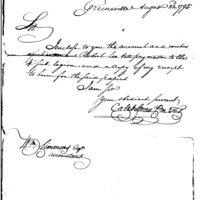 Greeneville August 22d 1795
Sir
I enclose to you the account and vouchers
of Robert Lee late pay master to the
4th sub legion and a copy of my receipt
to him for the said papers
I am Sir
Your obedient Servant
Caleb Swan P.M. U.S.
Wm. Simmons Esqr.
accountant